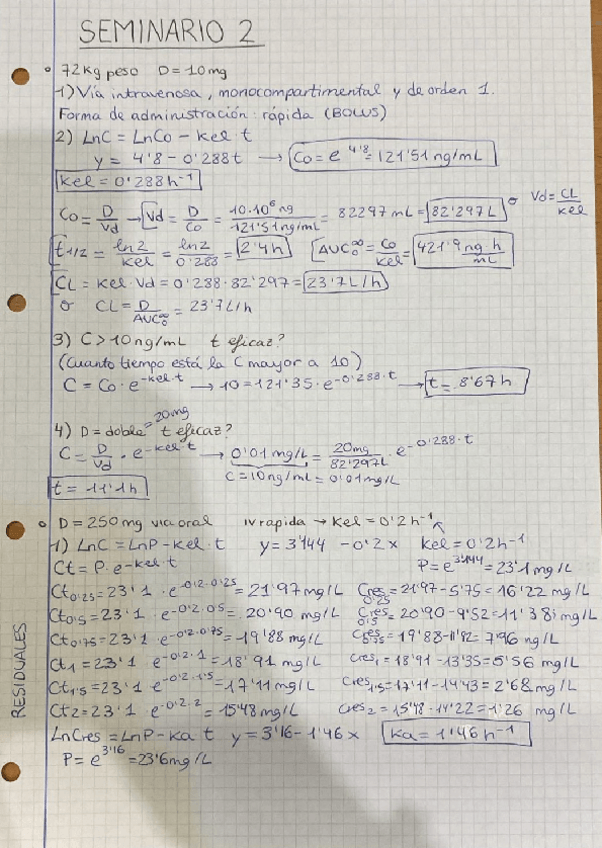 SEMINARIO 2
72kg peso D=10mg
1) Vía intravenosa, monocompartimental y de orden 1.
Forma de administración: rápida (BOLUS)
2) LnC = LnCo - Kel t
y = 4'8 - 0'288t → Co = e^4'8 = 121'51 ng/mL
Kel = 0'288h^-1
Co = D/Vd → Vd = D/Co = 10·10^6 ng/121'51 ng/mL = 82297 mL = 82'297L o Vd = CL/Kel
t1/2 = ln2/Kel = ln2/0'283 = 2'4h AUC0^∞ = Co/Kel = 421'9 ng h/mL
CL = Kel·Vd = 0'288·82'297 = 23'7L/h
o CL = D/AUC0^∞ = 23'7L/h
3) C > 10ng/mL t eficaz?
(Cuanto tiempo está la C mayor a 10)
C = Co·e^-Kel·t → 10 = 121'35·e^-0'288·t → t = 8'67h
4) D = doble = 20mg t eficaz?
C = D/Vd · e^-Kel·t → 0'01 mg/L = 20mg/82'297L · e^-0'288·t
C = 10ng/mL = 0'01mg/L
t = 11'1h
D = 250mg via oral IV rapida → Kel = 0'2h^-1
1) LnC = LnP - Kel·t y = 3'144 - 0'2x Kel = 0'2h^-1
Ct = P·e^-Kel·t P = e^3'144 = 23'1mg/L
Ct0'25 = 23'1 · e^-0'2·0'25 = 21'97mg/L Cres0'25 = 21'97 - 5'75 = 16'22 mg/L
Ct0'5 = 23'1 · e^-0'2·0'5 = 20'90 mg/L Cres0'5 = 20'90 - 9'52 = 11'38 mg/L
Ct0'75 = 23'1 e^-0'2·0'75 = 19'88 mg/L Cres0'75 = 19'88 - 11'92 = 7'96 ng/L
Ct1 = 23'1 · e^-0'2·1 = 18'91 mg/L Cres1 = 18'91 - 13'35 = 5'56 mg/L
Ct1'5 = 23'1 e^-0'2·1'5 = 17'11 mg/L Cres1'5 = 17'11 - 14'43 = 2'68 mg/L
Ct2 = 23'1 e^-0'2·2 = 15'48 mg/L Cres2 = 15'48 - 14'22 = 1'26 mg/L
RESIDUALES
LnCres = LnP - Ka t y = 3'16 - 1'46x Ka = 1'46h^-1
P = e^3'16 = 23'6mg/L